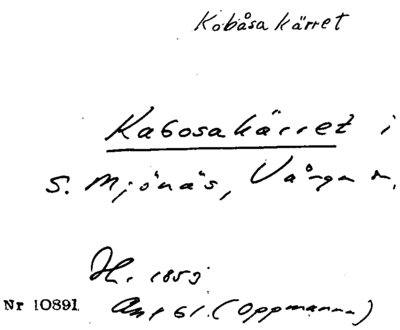 Kobåsa kärret
Kabosakärret i
S. Mjönäs, Vånga sn.
H. 1853
Nr 10891. Ant 61. (Oppmanna)